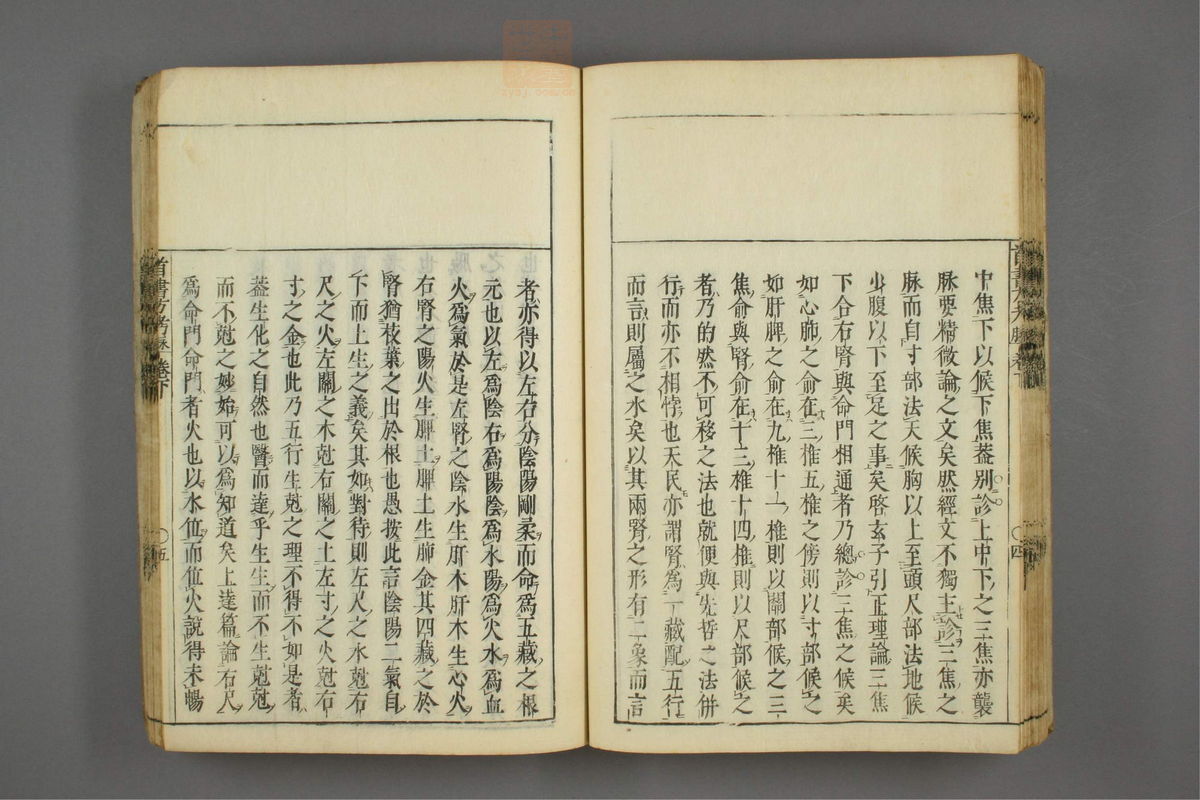 中焦下以候下焦蓋别診上中下之三焦亦襲
脉要精微論之文矣然經文不獨主診三焦之
脉而自寸部法天候胸以上至頭尺部法地候
少腹以下至足之事矣啓玄子引正理論三焦
下合右腎與命門相通者乃總診三焦之候矣
如心肺之俞在三椎五椎之傍則以寸部候之
如肝脾之俞在九椎十一椎則以關部候之三
焦俞與腎俞在十三椎十四椎則以尺部候之
者乃的然不可移之法也就便與先哲之法併
行而亦不相悖也天民亦謂腎爲一藏配五行
而言則屬之水矣以其兩腎之形有二象而言
首書方考脉 卷下
〇四
者亦得以左右分陰陽剛柔而命爲五藏之根
元也以左爲陰右爲陽陰爲水陽爲火水爲血
火爲氣於是左腎之陰水生肝木肝木生心火
右腎之陽火生脾土脾土生肺金其四藏之於
腎猶枝葉之出於根也愚按此言陰陽二氣自
下而上生之義矣其如對待則左尺之水尅右
尺之火左關之木尅右關之土左寸之火尅右
寸之金也此乃五行生尅之理不得不如是者
葢生化之自然也醫而達乎生生而不生尅尅
而不尅之妙始可以爲知道矣上達篇論右尺
爲命門命門者火也以水位而位火說得未暢
首書方考脉 卷下
〇五